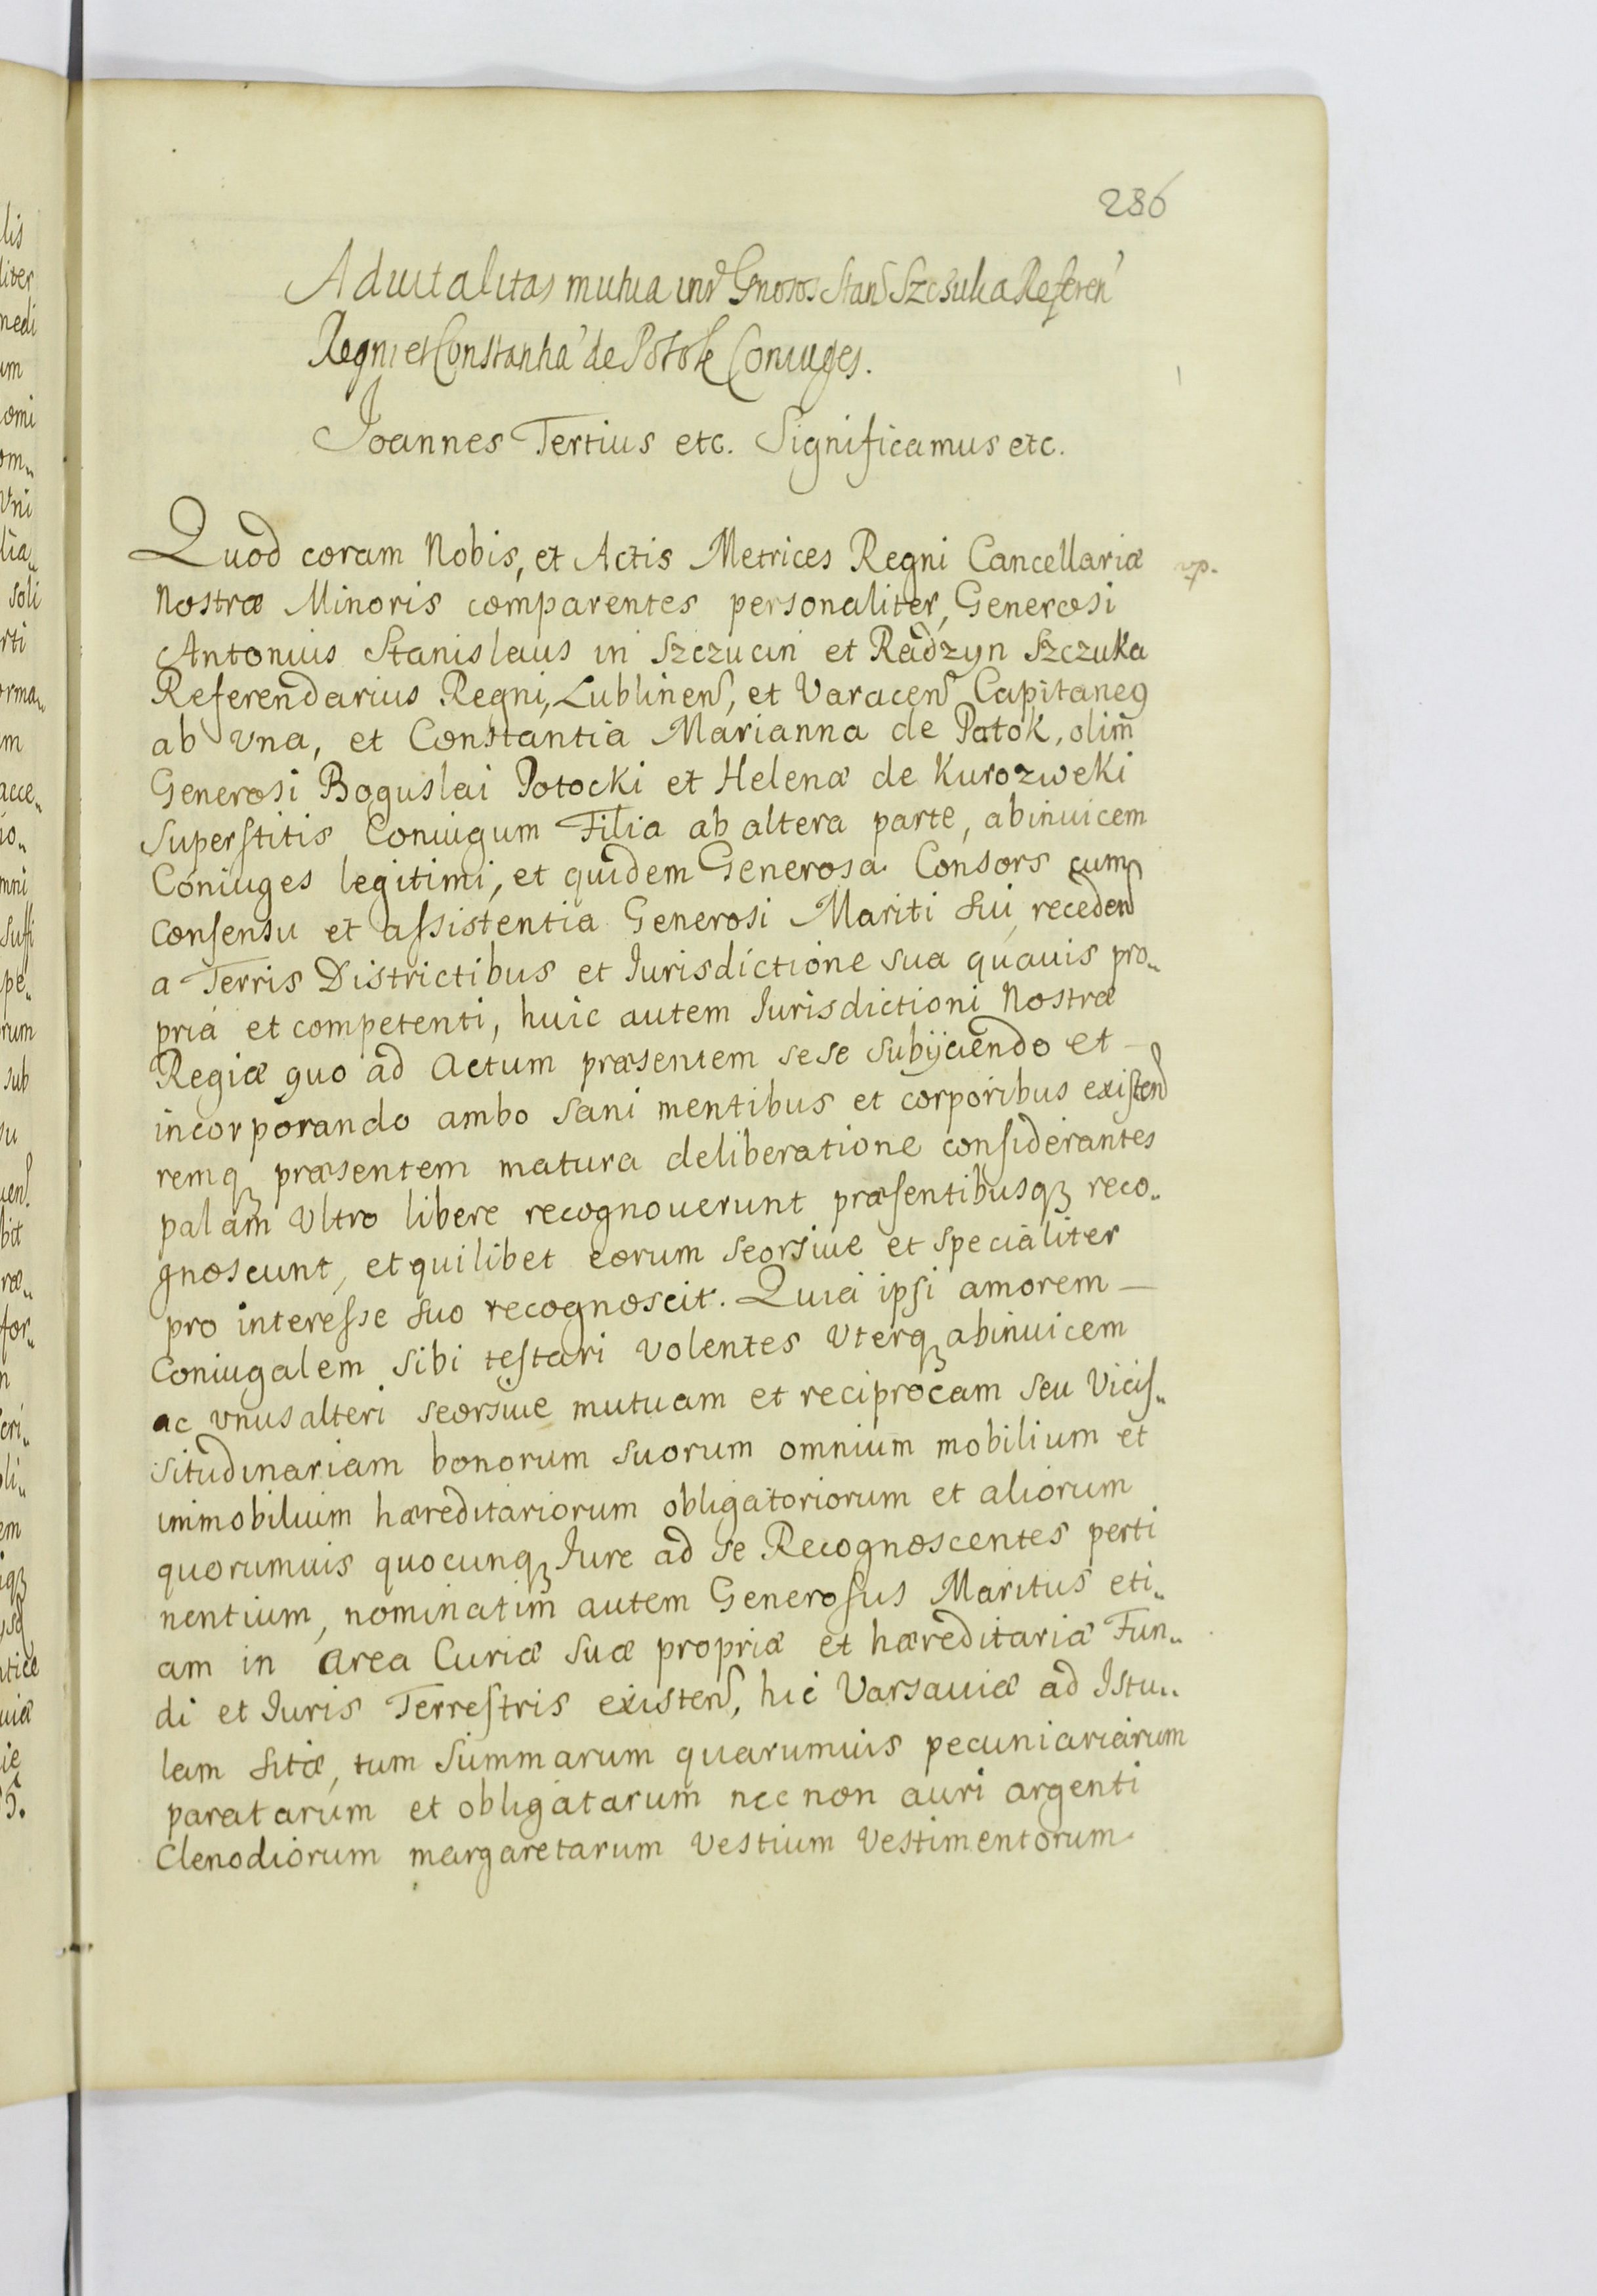 286
Aduitalitas mutua int Gnosos Stan Szczuka Referen
Regni et Constantia de Potok Coniuges.
Joannes Tertius etc. Significamus etc.
Quod coram Nobis, et Actis Metrices Regni Cancellariæ
Nostræ Minoris comparentes personaliter, Generosi
Antonius Stanislaus in Szczucin et Radzyn Szczuka
Referendarius Regni, Lublinens, et Varacens Capitaneꝯ
ab vna, et Constantia Marianna de Potok, olim̄
Generosi Boguslai Potocki et Helenæ de Kurozweki
Superſtitis Coniugum Filia ab altera parte, abinuicem
Coniuges legitimi, et quidem Generosa Consors cum
Conſensu et aſsistentia Generosi Mariti Sui, recedend
a Terris Districtibus et Iurisdictione sua quauis pro„
pria et competenti, huic autem Iurisdictioni Nostræ
Regiæ quo ad Actum præsentem sese subijciendo et —
incorporando ambo sani mentibus et corporibus exiſtend
remqꝫ præsentem matura deliberatione conſiderantes
palam Vltro libere recognouerunt præſentibusqꝫ reco„
gnoscunt, et quilibet eorum seorsiue et specialiter
pro intereſse suo recognoscit. Quia ipſi amorem —
Coniugalem sibi teſtari volentes Vterqꝫ abinuicem
ac vnus alteri seorsiue mutuam et reciprocam seu Viciſ„
situdinariam bonorum suorum omnium mobilium et
immobilium hæreditariorum obligatoriorum et aliorum
quorumuis quocunqꝫ Iure ad se Recognoscentes perti
nentium, nominatim autem Generoſus Maritus eti„
am in Area Curiæ suæ propriæ et hæreditariæ Fun„
di et Iuris Terreſtris existens, hic Varsauiæ ad Istu„
lam sitæ, tum Summarum quarumuis pecuniariarum
paratarum et obligatarum nec non auri argenti
Clenodiorum margaretarum Vestium Vestimentorum